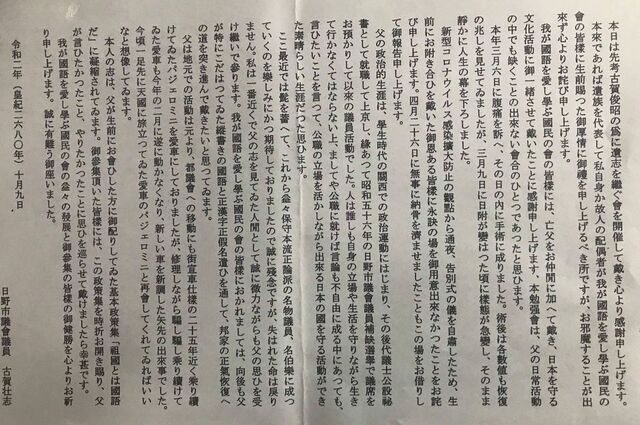 本日は先考古賀俊昭の爲に遺志を繼ぐ會を開催して戴き心より感謝申し上げます。
本來であれば遺族を代表して私自身か故人の配偶者が我が國語を愛し學ぶ國民の
會の皆樣に生前賜つた御厚情に御禮を申し上げるべき所ですが、お邪魔することが出
來ず心よりお詫び申し上げます。
我が國語を愛し學ぶ國民の會の皆樣には、亡父をお仲間に加へて戴き、日本を守る
文化活動に御一緒させて戴いたことに感謝申し上げます。本勉強會は、父の日常活動
の中でも缺くことの出來ない會合のひとつであつたと思ひます。
本年三月六日に腹痛を訴へ、その日の内に手術に成りました。術後は各數値も恢復
の兆しを見せてゐましたが、三月九日に日附が變はつた頃に樣態が急變し、そのまま
靜かに人生の幕を下ろしました。
新型コロナウイルス感染擴大防止の觀點から通夜、告別式の儀を自肅したため、生
前にお付き合ひを戴いた御恩ある皆樣に永訣の場を御用意出來なかつたことをお詫
び申し上げます。四月二十六日に無事に納骨を濟ませましたこともこの場をお借りし
て御報告申し上げます。
父の政治的生涯は、學生時代の關西での政治運動にはじまり、その後代議士公設祕
書として就職して上京し、緣あつて昭和五十六年の日野市議會議員補缺選擧で議席を
お預かりして以來の議員活動でした。人は誰しも自身の立場や生活を守りながら生き
て行かなくてはならない上、ましてや公職に就けば言論も不自由に成る中にあつても、
言ひたいことを言つて、公職の立場を活かしながら出來る日本の國を守る活動ができ
た素晴らしい生涯だつたと思ひます。
ここ最近では髭を蓄へて、これから益々保守本流正論派の名物議員、名伯樂に成つ
ていくのを樂しみにかつ期待しておりましたので誠に殘念ですが、失はれた命は戻り
ません。私は一番近くで父の志を見てゐた人間として誠に微力ながらも父の思ひを受
け繼いで參ります。我が國語を愛し學ぶ國民の會の皆樣におかれましては、向後も父
が特にこだはつてゐた縱書きの國語と正漢字正假名遣ひを通して、邦家の正氣恢復へ
の道を突き進んで戴きたいと思つてゐます。
父は地元での活動は元より、都議會への移動にも街宣車仕樣の二十五年近く乘り續
けてゐたパジェロミニを愛車にしておりましたが、修理しながら騙し騙し乘り續けて
ゐた愛車も今年の二月に遂に動かなくなり、新しい車を新調した矢先の出來事でした。
今頃一足先に天國に旅立つてゐた愛車のパジェロミニと再會してくれてゐればいい
なと想像してゐます。
本人の志は、父が生前にお會ひした方に御配りしてゐた基本政策集「祖國とは國語
だ」に凝縮されてゐます。御參集頂いた皆樣には、この政策集を時折お開き賜り、父
が言ひたかつたこと、やりたかつたことに思ひを巡らせて戴けましたら幸甚です。
我が國語を愛し學ぶ國民の會の益々の發展と御參集の皆樣の御健勝を心よりお祈
り申し上げます。誠に有難う御座いました。
令和二年(皇紀二六八〇年)十月九日
日野市議會議員 古賀壯志